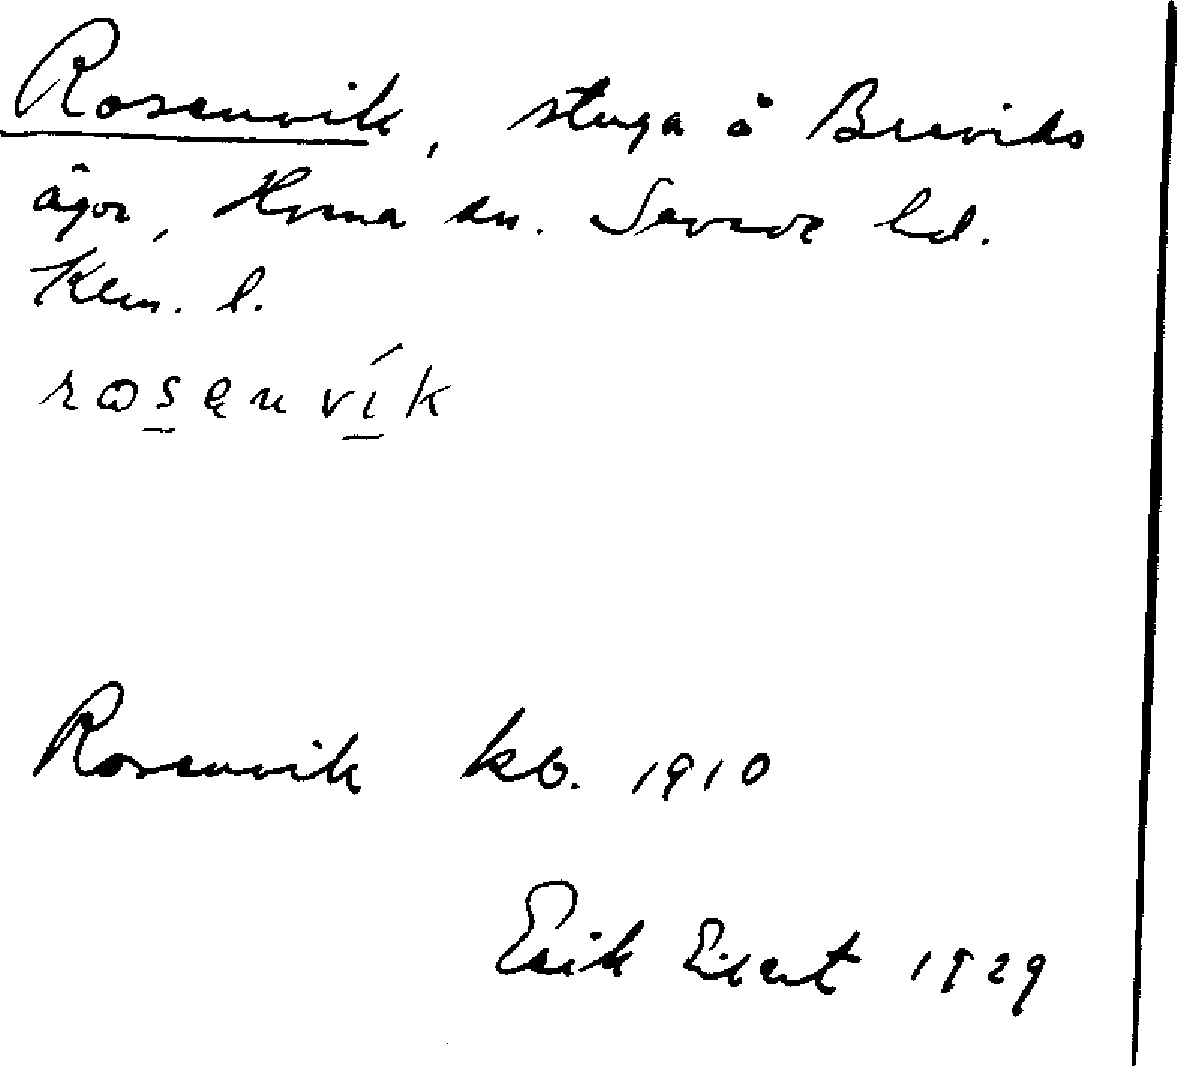 Rosenvik, stuga å Breviks
ägor, Horna sn. Sevede hd.
Klm. l.
rosenvík
Rosenvik kb. 1910
Erik 1929